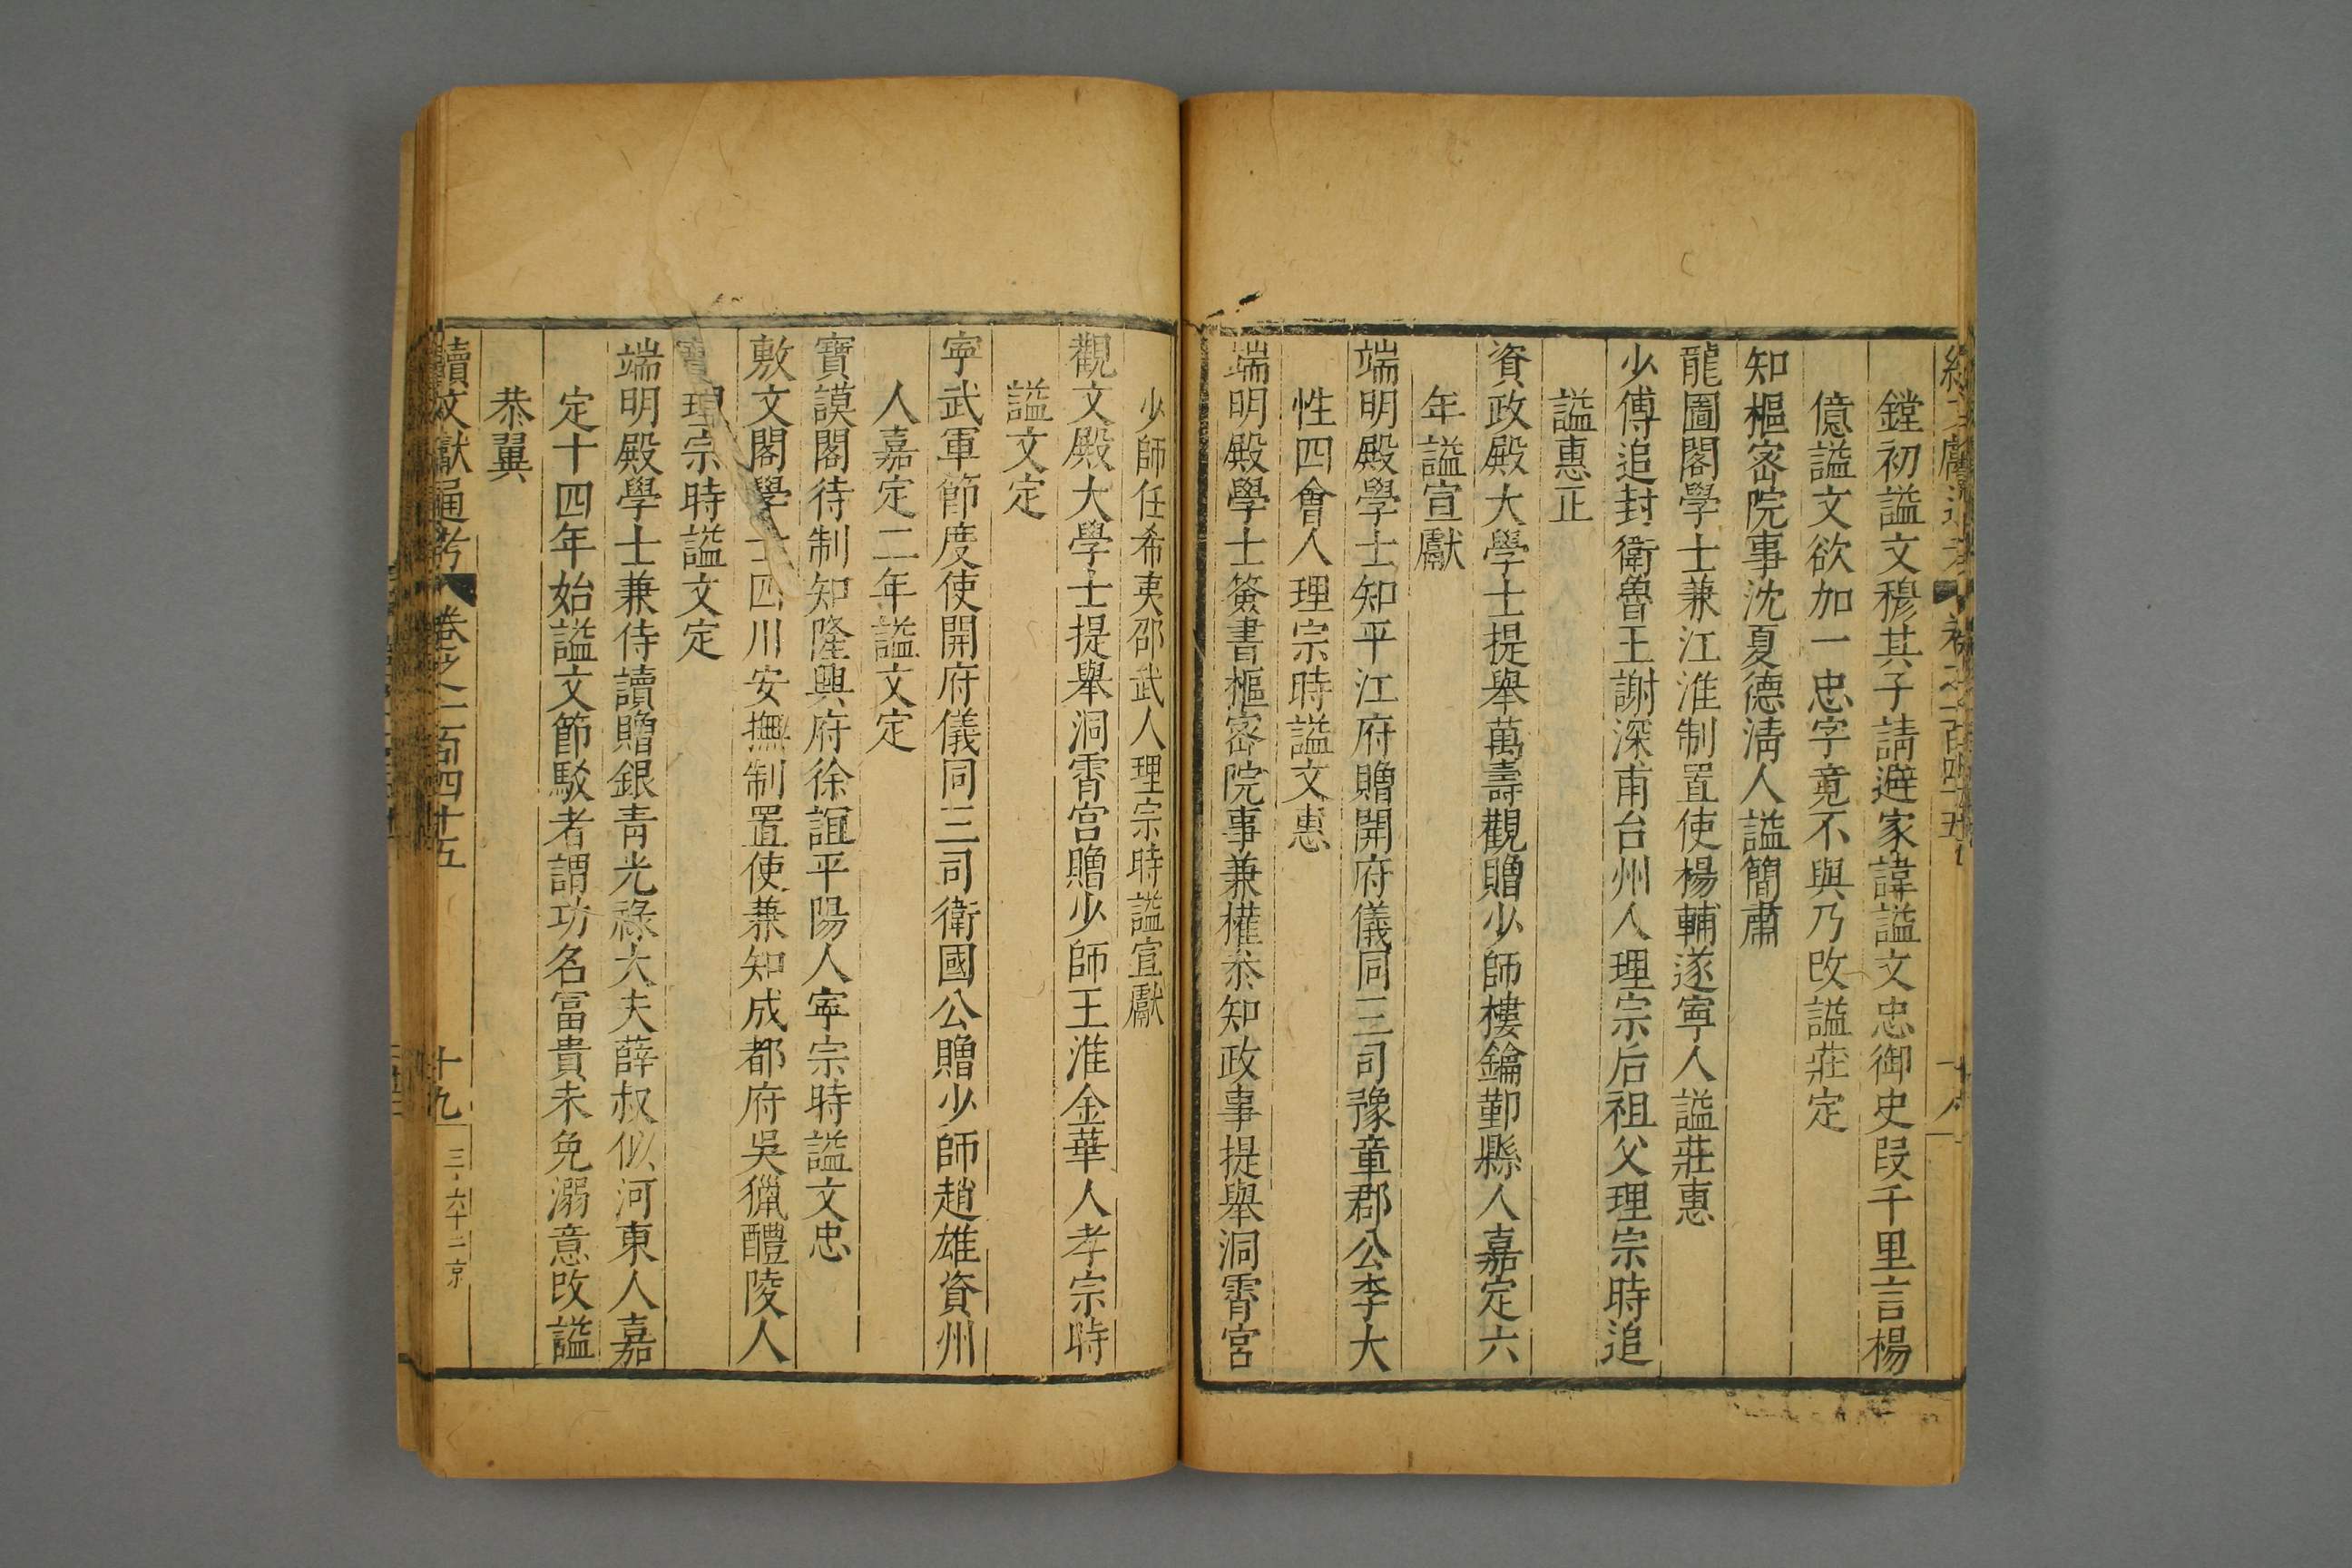 鏜初謚文穆其子請避家諱謚文忠御史段千里言楊
億謚文欲加一忠字竟不與乃改謚莊定
知樞宻院事沈夏德清人謚簡肅
龍圖閣學士兼江淮制置使楊輔遂寧人謚莊惠
少傅追封衛魯王謝深甫台州人理宗后祖父理宗時追
謚惠正
資政殿大學士提舉萬壽觀贈少師樓鑰鄞縣人嘉定六
年謚宣獻
端明殿學士知平江府贈開府儀同三司豫章郡公李大
性四會人理宗時謚文惠
端明殿學士簽書樞宻院事兼權叅知政事提舉洞霄宮
少師任希夷邵武人理宗時謚宣獻
觀文殿大學士提舉洞霄宮贈少師王淮金華人孝宗時
謚文定
寧武軍節度使開府儀同三司衛國公贈少師趙雄資州
人嘉定二年謚文定
寶謨閣待制知隆興府徐誼平陽人寧宗時謚文忠
敷文閣學士四川安撫制置使兼知成都府吳獵醴陵人
理宗時謚文定
端明殿學士兼侍讀贈銀青光祿大夫薛叔似河東人嘉
定十四年始謚文節駁者謂功名富貴未免溺意改謚
恭翼
續文獻通考 卷之一百四十五 十九 三六十二 京